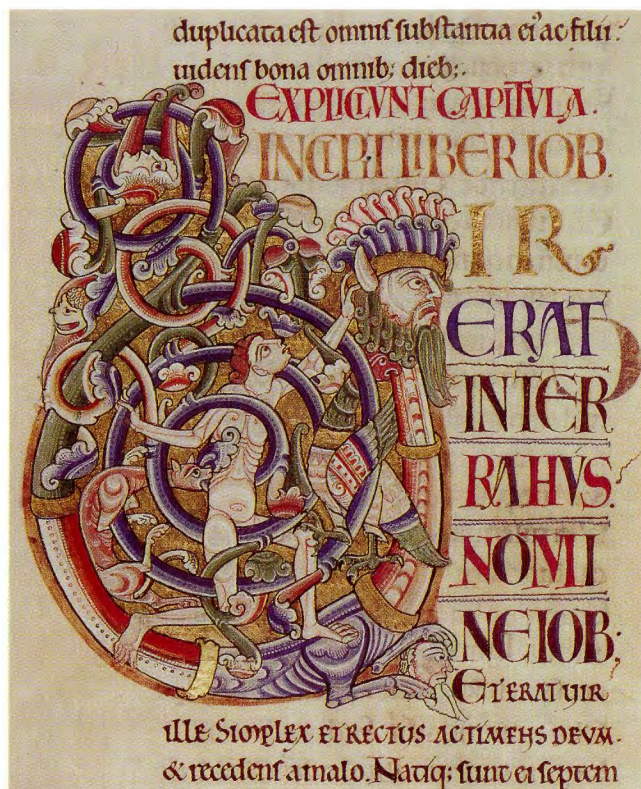 duplicata est omnis substantia ei' ac filii
uidens bona omnib; dieb;.
EXPLICIUNT CAPITVLA.
INCIPIT LIBER IOB.
IR
ERAT
IN TER
RA HVS.
NOMI
NE IOB;
ET ERAT VIR
ILLE SIMPLEX ET RECTUS AC TIMENS DEVM.
& recedens a malo. Natiq; sunt ei septem